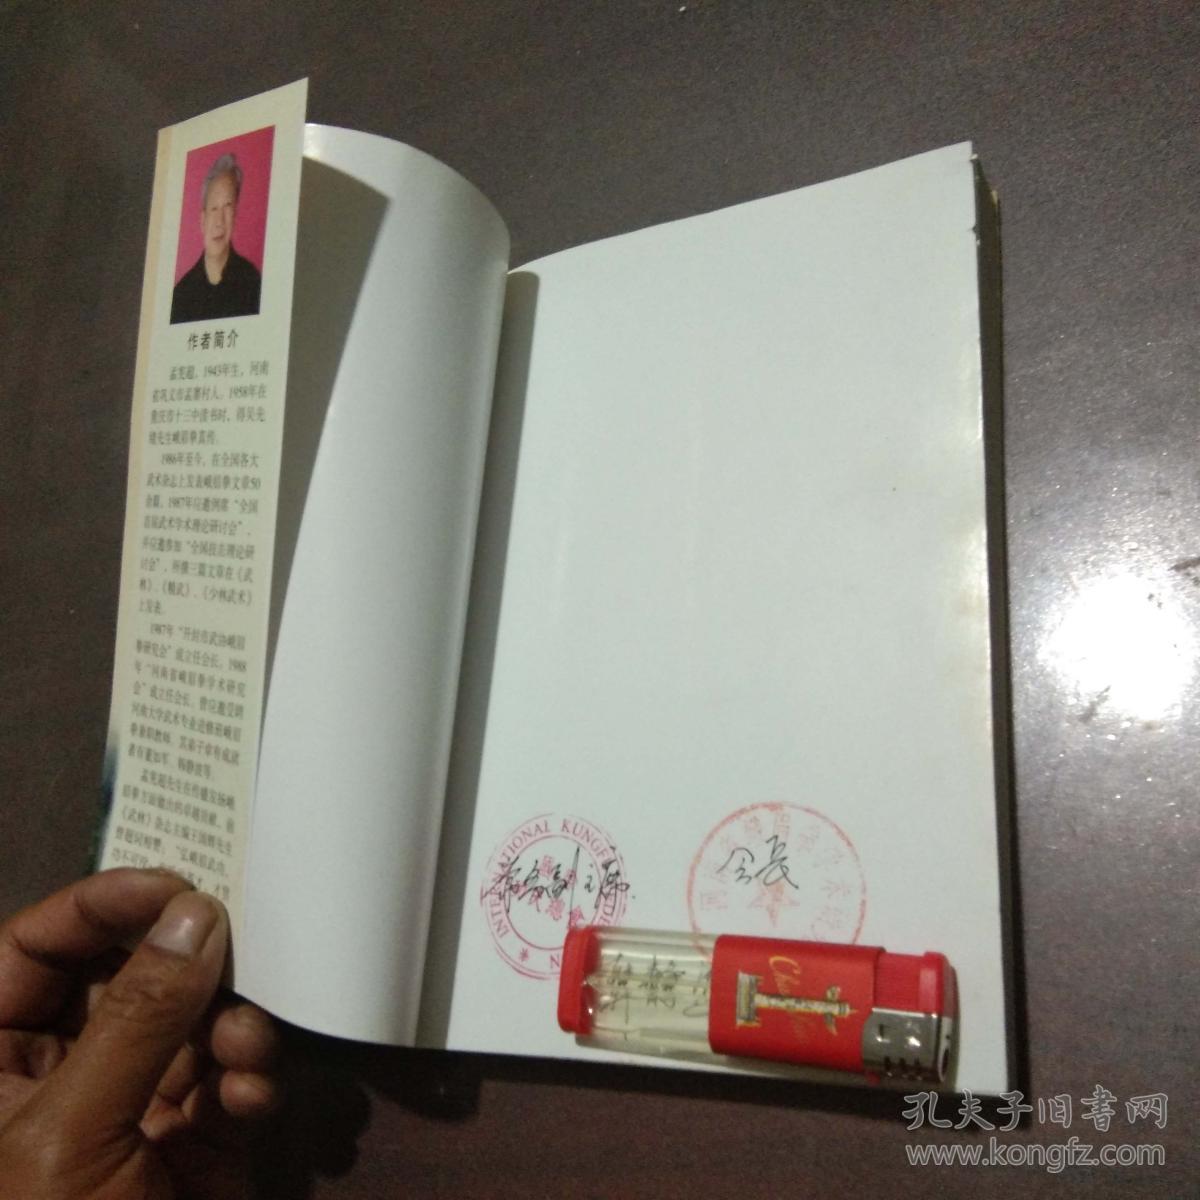 作者简介
孟宪超，1943年生，河南
省巩义市孟寨村人。1958年在
重庆市十三中读书时，得吴先
绪先生峨眉拳真传。
1986年至今，在全国各大
武术杂志上发表峨眉拳文章50
余篇。1987年应邀例席“全国
首届武术学术理论研讨会”，
并应邀参加“全国技击理论研
讨会”，所撰三篇文章在《武
林》、《精武》、《少林武术》
上发表。
1987年“开封市武协峨眉
拳研究会”成立任会长，1988
年“河南省峨眉拳学术研究
会”成立任会长。曾应邀受聘
河南大学武术专业进修班峨眉
拳兼职教师。其弟子卓有成就
者有董如军、韩静波等。
孟宪超先生在传播发扬峨
眉拳方面做出的卓越贡献，前
《武林》杂志主编王国辉先生
曾题词相赞：“弘峨眉武功，
功不可没；
INTERNATIONAL KUNGF
副主席
会长
孔夫子旧书网
www.kongfz.com